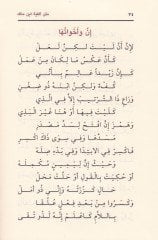 متن ألفية ابن مالك
إِنَّ وَأَخَوَاتُهَا
لِإِنَّ أَنَّ لَيْتَ لَكِنَّ لَعَلْ
كَأَنَّ عَكْسُ مَا لِكَانَ مِنْ عَمَلْ
كَإِنَّ زَيْدًا عَالِمٌ بِأَنِّي
كُفْءٌ وَلَكِنَّ ابْنَهُ ذُو ضِغْنِ
وَرَاعِ ذَا التَّرْتِيبَ إِلَّا فِي الَّذِي
كَلَيْتَ فِيهَا أَوْ هُنَا غَيْرَ الْبَذِي
وَهَمْزَ إِنَّ افْتَحْ لِسَدِّ مَصْدَرِ
مَسَدَّهَا وَفِي سِوَى ذَاكَ اكْسِرِ
فَاكْسِرْ فِي الِابْتِدَا وَفِي بَدْءِ صِلَهْ
وَحَيْثُ إِنَّ لِيَمِينٍ مُكْمِلَهْ
أَوْ حُكِيَتْ بِالْقَوْلِ أَوْ حَلَّتْ مَحَلْ
حَالٍ كَزُرْتُهُ وَإِنِّي ذُو أَمَلْ
وَكَسَرُوا مِنْ بَعْدِ فِعْلٍ عُلِّقَا
بِاللَّامِ كَاعْلَمْ إِنَّهُ لَذُو تُقَى